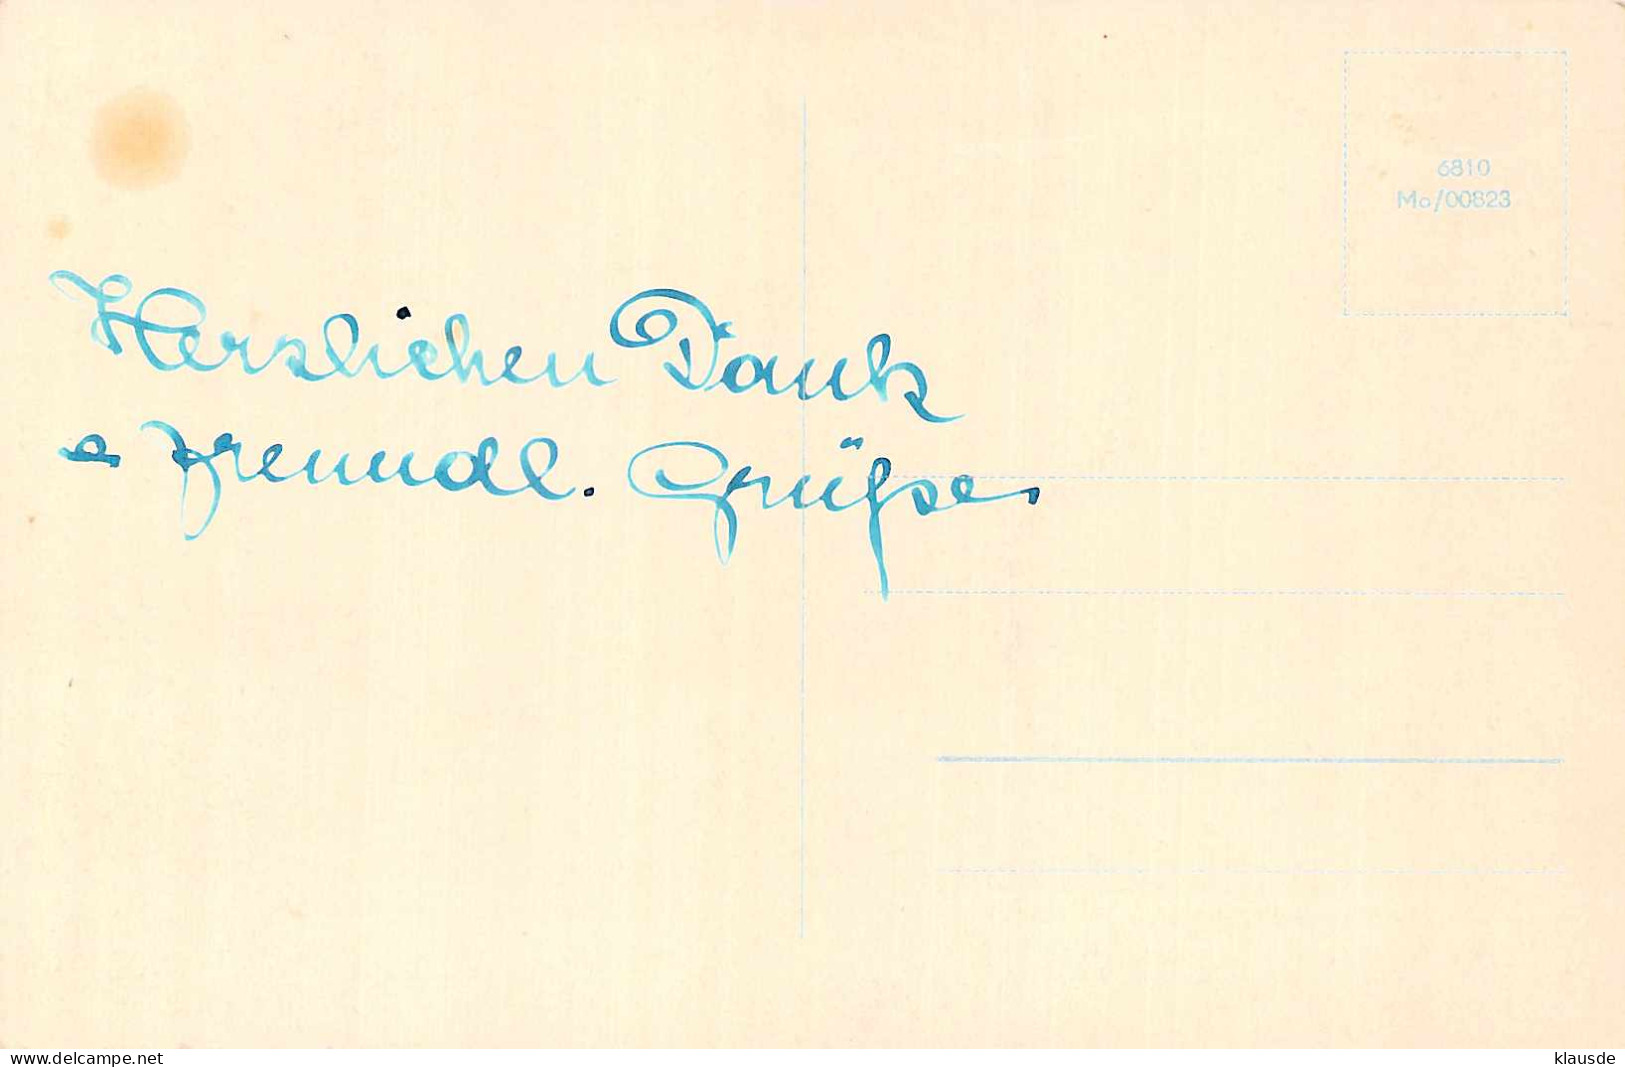 6810
Mo/00823
Herzlichen Dank
& freundl. Grüße
www.delcampe.net
klausde